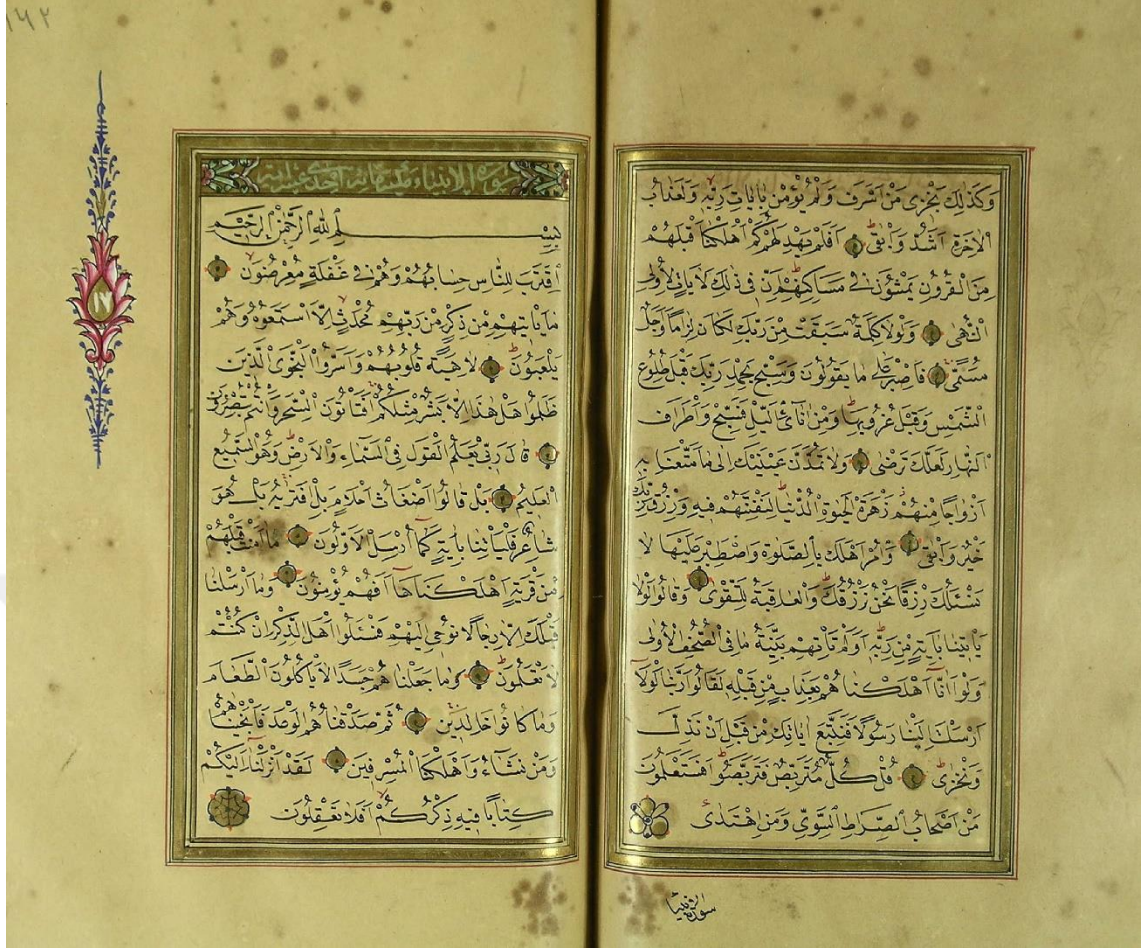 وَكَذٰلِكَ نَجْزِى مَنْ اَسْرَفَ وَلَمْ يُؤْمِنْ بِاٰيَاتِ رَبِّهٖ وَلَعَذَابُ
الْاٰخِرَةِ اَشَدُّ وَاَبْقٰى اَفَلَمْ يَهْدِ لَهُمْ كَمْ اَهْلَكْنَا قَبْلَهُمْ
مِنَ الْقُرُونِ يَمْشُونَ فٖى مَسَاكِنِهِمْ اِنَّ فٖى ذٰلِكَ لَاٰيَاتٍ لِاُولِى
النُّهٰى وَلَوْلَا كَلِمَةٌ سَبَقَتْ مِنْ رَبِّكَ لَكَانَ لِزَامًا وَاَجَلٌ
مُسَمًّى فَاصْبِرْ عَلٰى مَا يَقُولُونَ وَسَبِّحْ بِحَمْدِ رَبِّكَ قَبْلَ طُلُوعِ
الشَّمْسِ وَقَبْلَ غُرُوبِهَا وَمِنْ اٰنَائِ الَّيْلِ فَسَبِّحْ وَاَطْرَافَ
النَّهَارِ لَعَلَّكَ تَرْضٰى وَلَا تَمُدَّنَّ عَيْنَيْكَ اِلٰى مَا مَتَّعْنَا بِهٖ
اَزْوَاجًا مِنْهُمْ زَهْرَةَ الْحَيٰوةِ الدُّنْيَا لِنَفْتِنَهُمْ فٖيهِ وَرِزْقُ رَبِّكَ
خَيْرٌ وَاَبْقٰى وَأْمُرْ اَهْلَكَ بِالصَّلٰوةِ وَاصْطَبِرْ عَلَيْهَا لَا
نَسْـَٔلُكَ رِزْقًا نَحْنُ نَرْزُقُكَ وَالْعَاقِبَةُ لِلتَّقْوٰى وَقَالُوا لَوْلَا
يَأْتٖينَا بِاٰيَةٍ مِنْ رَبِّهٖ اَوَلَمْ تَأْتِهِمْ بَيِّنَةُ مَا فِى الصُّحُفِ الْاُولٰى
وَلَوْ اَنَّا اَهْلَكْنَاهُمْ بِعَذَابٍ مِنْ قَبْلِهٖ لَقَالُوا رَبَّنَا لَوْلَا
اَرْسَلْتَ اِلَيْنَا رَسُولًا فَنَتَّبِعَ اٰيَاتِكَ مِنْ قَبْلِ اَنْ نَذِلَّ
وَنَخْزٰى قُلْ كُلٌّ مُتَرَبِّصٌ فَتَرَبَّصُوا فَسَتَعْلَمُونَ
مَنْ اَصْحَابُ الصِّرَاطِ السَّوِىِّ وَمَنِ اهْتَدٰى
١٦٢
سورة الانبياء
بِسْمِ اللهِ الرَّحْمٰنِ الرَّحٖيمِ
اِقْتَرَبَ لِلنَّاسِ حِسَابُهُمْ وَهُمْ فٖى غَفْلَةٍ مُعْرِضُونَ
مَا يَأْتٖيهِمْ مِنْ ذِكْرٍ مِنْ رَبِّهِمْ مُحْدَثٍ اِلَّا اسْتَمَعُوهُ وَهُمْ
يَلْعَبُونَ لَاهِيَةً قُلُوبُهُمْ وَاَسَرُّوا النَّجْوَى الَّذٖينَ
ظَلَمُوا هَلْ هٰذَا اِلَّا بَشَرٌ مِثْلُكُمْ اَفَتَأْتُونَ السِّحْرَ وَاَنْتُمْ تُبْصِرُونَ
قَالَ رَبّٖى يَعْلَمُ الْقَوْلَ فِى السَّمَاءِ وَالْاَرْضِ وَهُوَ السَّمٖيعُ
الْعَلٖيمُ بَلْ قَالُوا اَضْغَاثُ اَحْلَامٍ بَلِ افْتَرٰيهُ بَلْ هُوَ
شَاعِرٌ فَلْيَأْتِنَا بِاٰيَةٍ كَمَا اُرْسِلَ الْاَوَّلُونَ مَا اٰمَنَتْ قَبْلَهُمْ
مِنْ قَرْيَةٍ اَهْلَكْنَاهَا اَفَهُمْ يُؤْمِنُونَ وَمَا اَرْسَلْنَا
قَبْلَكَ اِلَّا رِجَالًا نُوحٖى اِلَيْهِمْ فَسْـَٔلُوا اَهْلَ الذِّكْرِ اِنْ كُنْتُمْ
لَا تَعْلَمُونَ وَمَا جَعَلْنَاهُمْ جَسَدًا لَا يَأْكُلُونَ الطَّعَامَ
وَمَا كَانُوا خَالِدٖينَ ثُمَّ صَدَقْنَاهُمُ الْوَعْدَ فَاَنْجَيْنَاهُمْ
وَمَنْ نَشَاءُ وَاَهْلَكْنَا الْمُسْرِفٖينَ لَقَدْ اَنْزَلْنَا اِلَيْكُمْ
كِتَابًا فٖيهِ ذِكْرُكُمْ اَفَلَا تَعْقِلُونَ
١٧